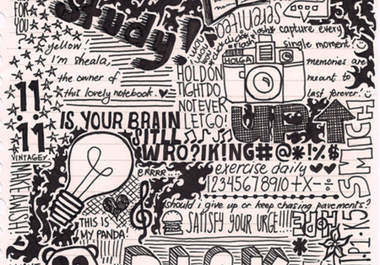 FOR YOU
Study!
yellow.
I'm sheala,
the owner of
this lovely notebook.
11:11
VINTAGE!
MAKE A WISH!
capture every
single moment.
memories are
meant to
last forever!
HOLGA
HOLD ON
TIGHT DO
NOT EVER
LET GO!
UP
IS YOUR BRAIN
SITLL
WRO?!K!NG#@*!%$
errrr...
exercise daily
12345678910+X-÷
should i give up or keep chasing pavements?
THIS IS
MY PANDA!
SATISFY YOUR URGE!!!!